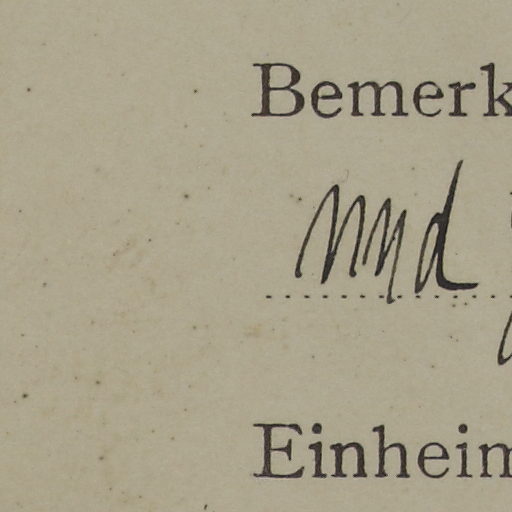 Bemerk
und
Einheim